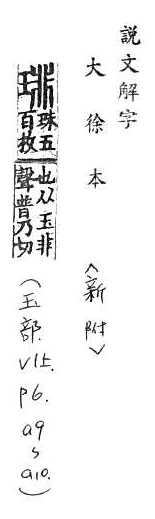 說文解字
大徐本〈新附〉
琲 珠五百枚也从玉非聲普乃切(玉部. V1上. p6. a9~a10.)